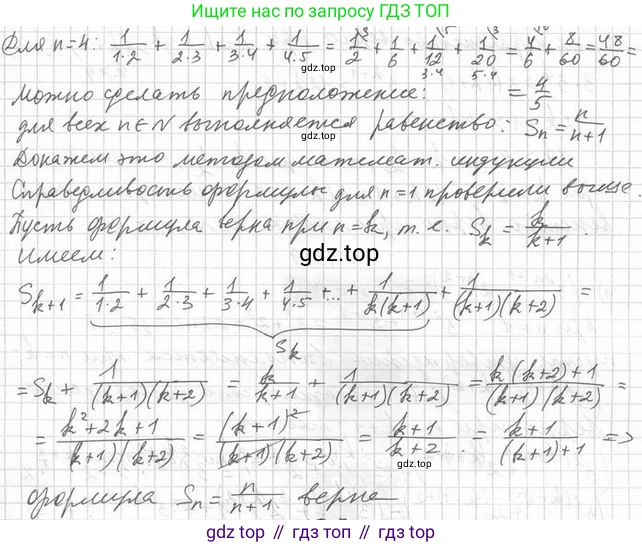 Ищите нас в поиске по запросу ГДЗ ТОП
Для n=4: 1/(1·2) + 1/(2·3) + 1/(3·4) + 1/(4·5) = 1/2 + 1/6 + 1/12 + 1/20 = 4/6 + 8/60 = 48/60 =
3·4 5·4
можно сделать предположение: = 4/5
для всех n∈N выполняется равенство: Sn = n/(n+1)
Докажем это методом математ. индукции
Справедливость формулы для n=1 проверили выше.
Пусть формула верна при n=k, т.е. Sk = k/(k+1).
gdz.top
Имеем:
Sk+1 = 1/(1·2) + 1/(2·3) + 1/(3·4) + 1/(4·5) + ... + 1/(k(k+1)) + 1/((k+1)(k+2)) =
Sk
= Sk + 1/((k+1)(k+2)) = k/(k+1) + 1/((k+1)(k+2)) = (k(k+2)+1)/((k+1)(k+2)) =
= (k²+2k+1)/((k+1)(k+2)) = (k+1)²/((k+1)(k+2)) = (k+1)/(k+2) = (k+1)/((k+1)+1) =>
формула Sn = n/(n+1) верна
gdz.top // gdz.top // gdz.top // gdz.top